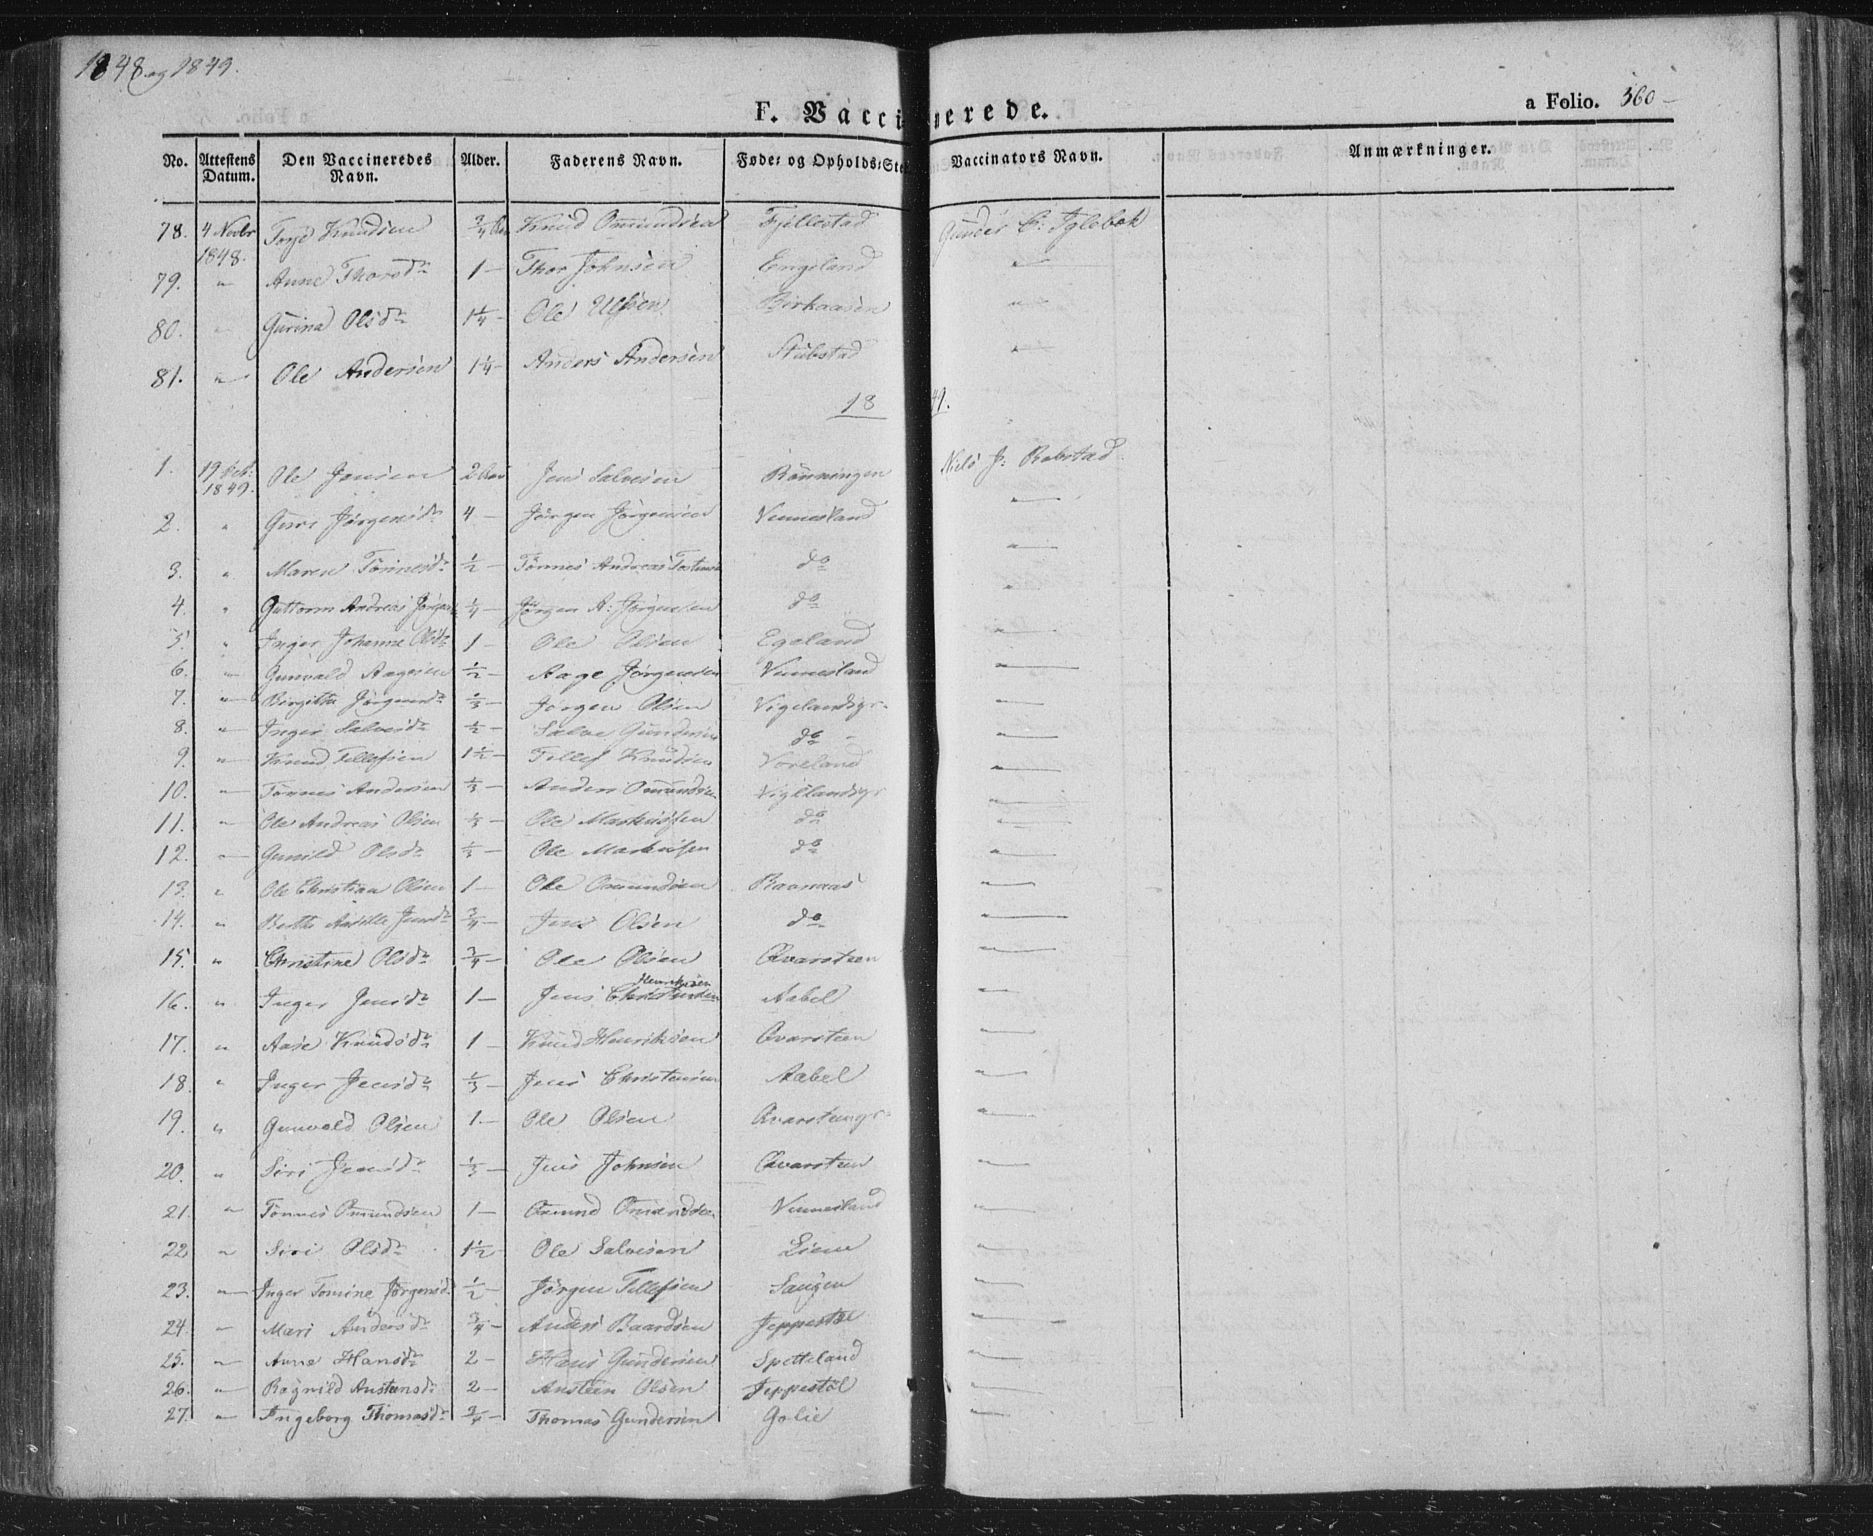 1848 og 1849.
F. Vaccinerede.
a Folio. 360
No. Attestens Datum. Den Vaccineredes Navn. Alder. Faderens Navn. Føde- og Opholds-Sted Vaccinators Navn. Anmærkninger.
78. 4 Novbr 1848. Terje Knudsen 3/4 Aar Knud Omundsen Fjellestad Gunder C: Iglebæk
79. " Anne Thorsdr 1 - Thor Johnsen Engeland "
80. " Gurina Olsdr 1 1/4 - Ole Ulfsen Birkaasen "
81. " Ole Andersen 1 1/4 - Anders Andersen Stubstad "
1849.
1. 19 Feb: 1849. Ole Jensen 2 Aar Jens Salvesen Rønningen Niels J: Robstad
2. " Guri Jørgensdr 4 - Jørgen Jørgensen Vennesland "
3. " Maren Tønnesdr 1/2 - Tønnes Andreas Tostensen do "
4. " Guttorm Andreas Jørgens 1/4 - Jørgen A: Jørgensen do "
5. " Inger Johanne Olsdr 1 - Ole Olsen Egeland "
6. " Gunvald Aagesen 1/2 - Aage Jørgensen Vennesland "
7. " Birgitta Jørgensdr 1/3 - Jørgen Olsen Vigelandsyr "
8. " Inger Salvesdr 1/2 - Salve Gundersen do "
9. " Knud Tellefsen 1 1/2 - Tellef Knudsen Voreland "
10. " Tønnes Andersen 1/3 - Anders Omundsen Vigelandsyr "
11. " Ole Andreas Olsen 1/3 - Ole Markusen do "
12. " Gunild Olsdr 1/3 - Ole Markusen do "
13. " Ole Christian Olsen 1 - Ole Omundsen Ravnaas "
14. " Berthe Jensdr 3/4 - Jens Olsen do "
15. " Christine Olsdr 3/4 - Ole Olsen Qvarsteen "
16. " Inger Jensdr 1 - Jens Henriksen Christensen Aabel "
17. " Aase Knudsdr 1 - Knud Henriksen Qvarsteen "
18. " Inger Jensdr 1/3 - Jens Christensen Aabel "
19. " Gunvald Olsen 1 - Ole Olsen "
20. " Siri Jensdr 1/3 - Jens Johnsen Qvarsteen "
21. " Tønnes Omundsen 1 - Omund Omundsen Vennesland "
22. " Siri Olsdr 1 1/2 - Ole Salvesen Liene "
23. " Inger Tomine Jørgensd. 1/2 - Jørgen Tellefsen Sangen "
24. " Mari Andersdr 3/4 - Anders Baardsen Jeppestøl "
25. " Anne Hansdr 2 - Hans Gundersen Spetteland "
26. " Ragnild Austensdr 2 - Austeen Olsen Jeppestøl "
27. " Ingeborg Thomasdr 3/4 - Thomas Gundersen Golie "